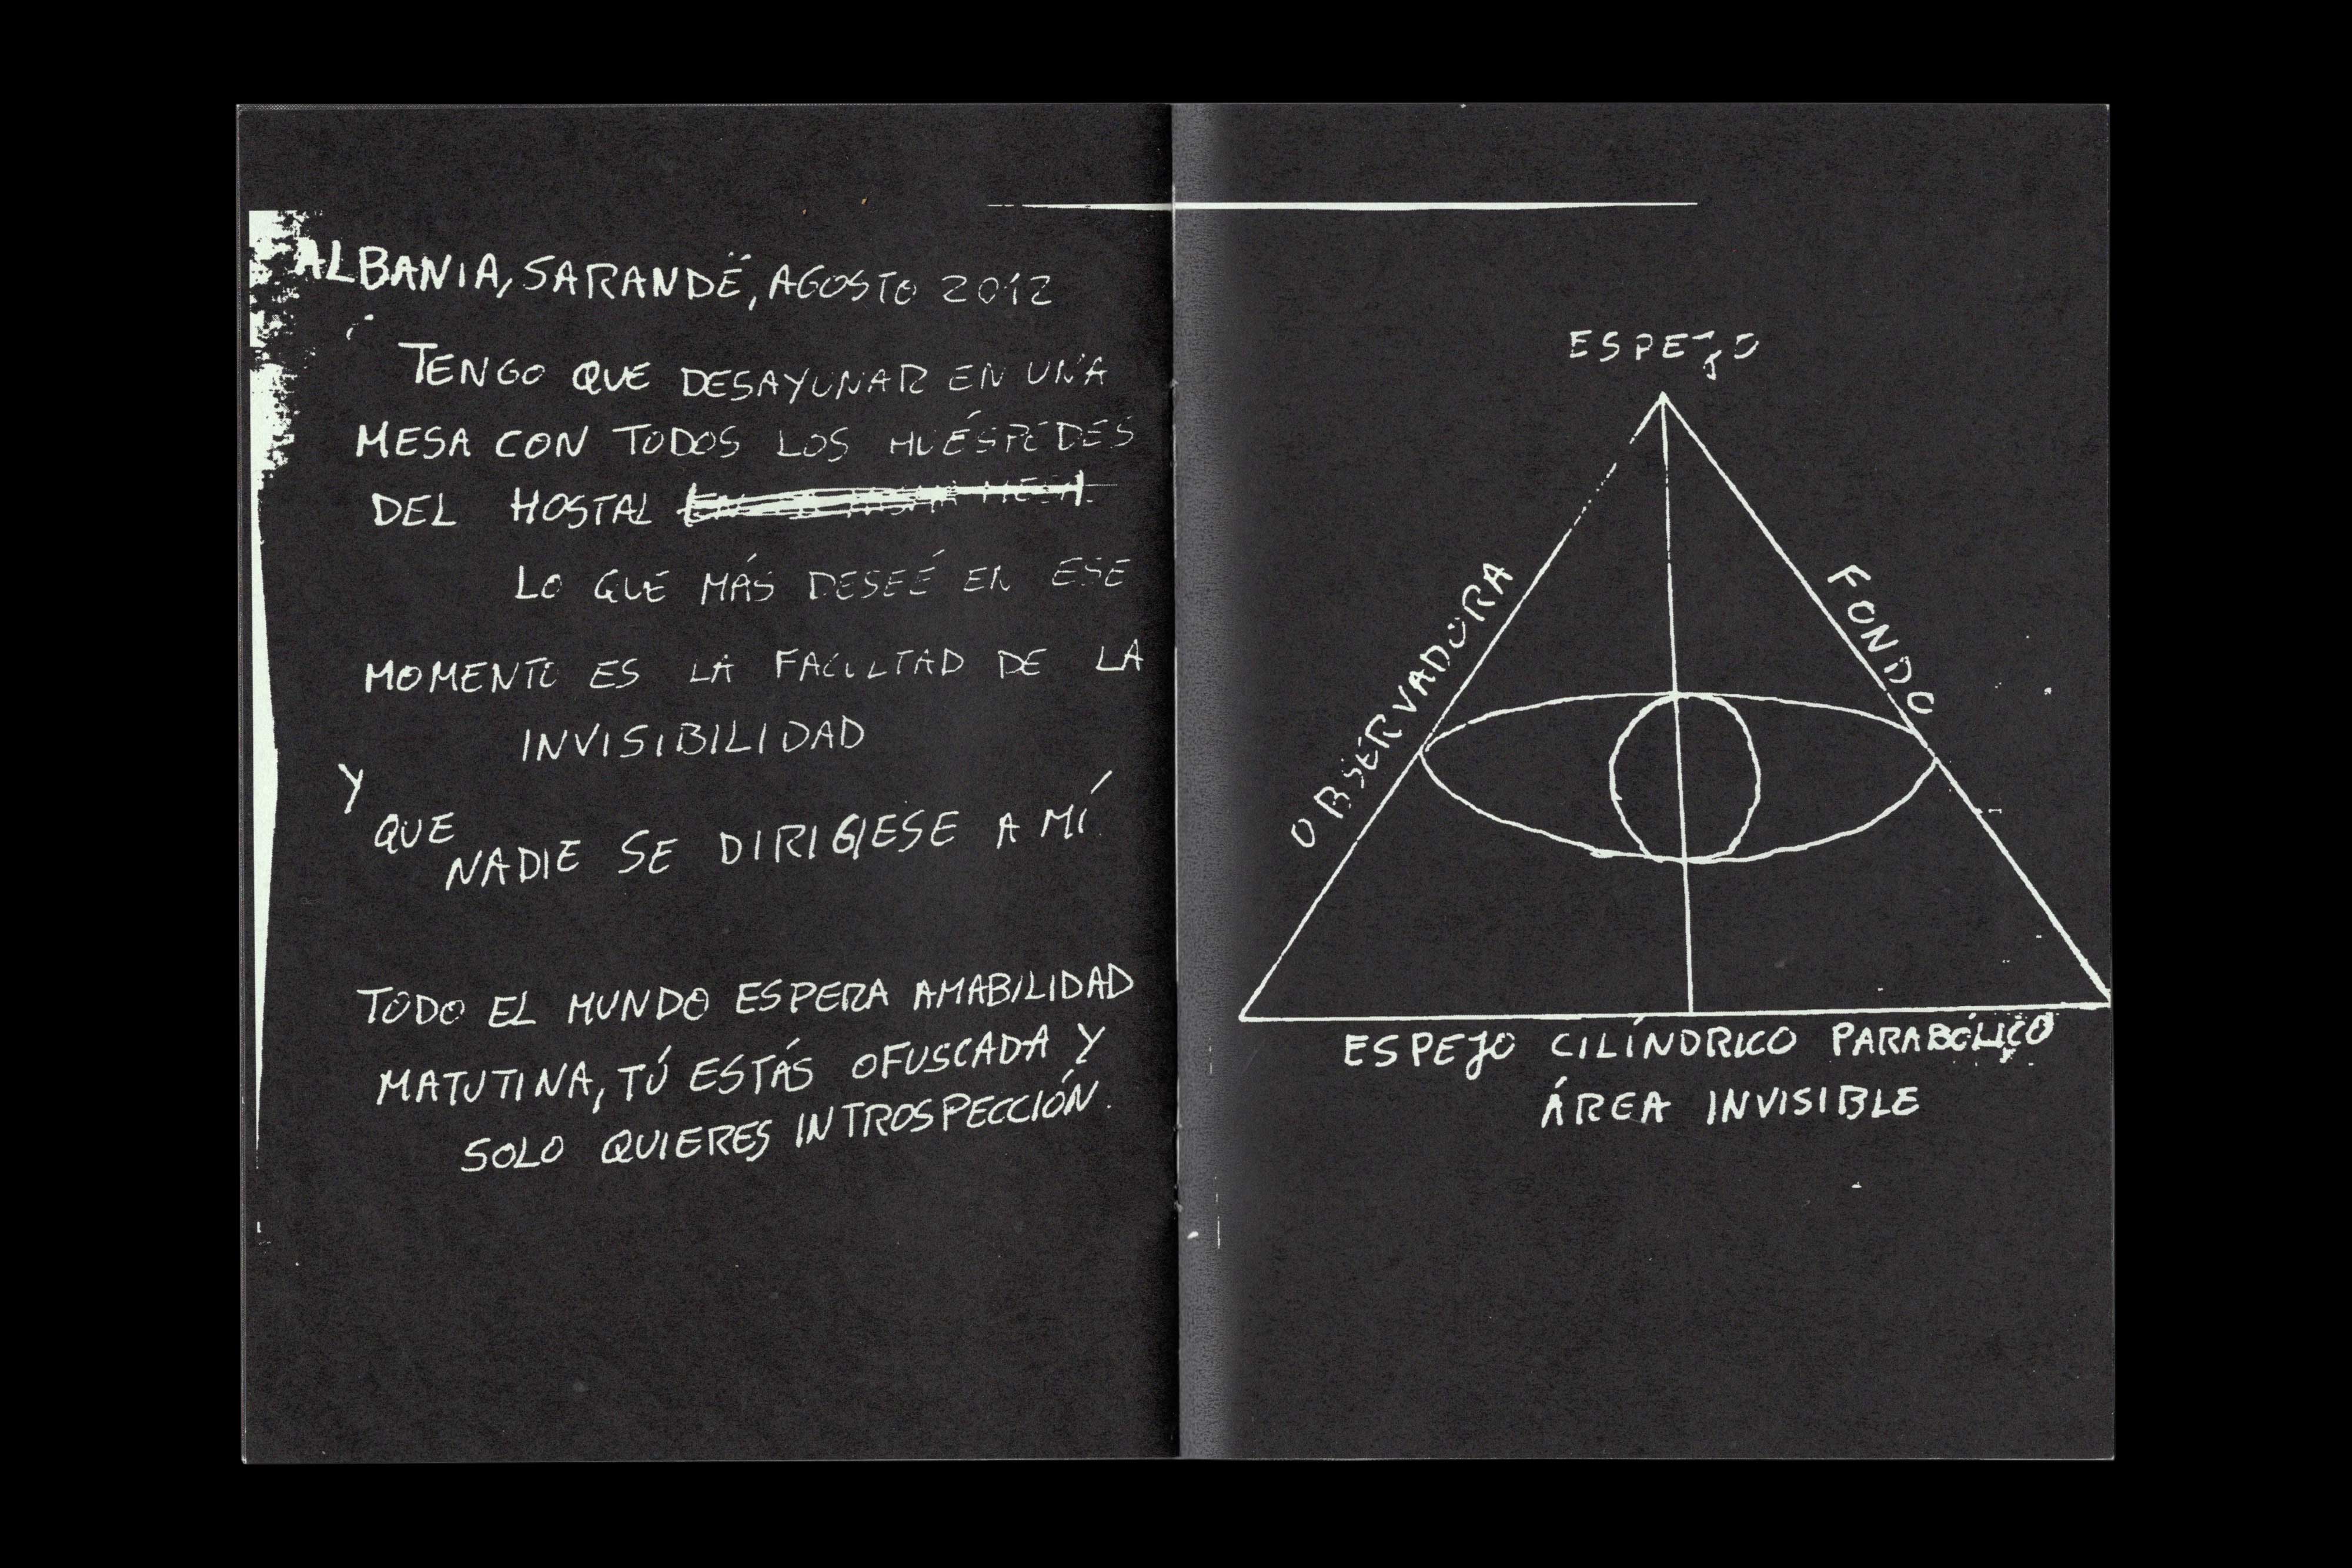 ALBANIA, SARANDË, AGOSTO 2012
TENGO QUE DESAYUNAR EN UNA
MESA CON TODOS LOS HUÉSPEDES
DEL HOSTAL
LO QUE MÁS DESEÉ EN ESE
MOMENTO ES LA FACULTAD DE LA
INVISIBILIDAD
Y
QUE
NADIE SE DIRIGIESE A MÍ
TODO EL MUNDO ESPERA AMABILIDAD
MATUTINA, TÚ ESTÁS OFUSCADA Y
SOLO QUIERES INTROSPECCIÓN.
ESPEJO
OBSERVADORA
FONDO
ESPEJO CILÍNDRICO PARABÓLICO
ÁREA INVISIBLE